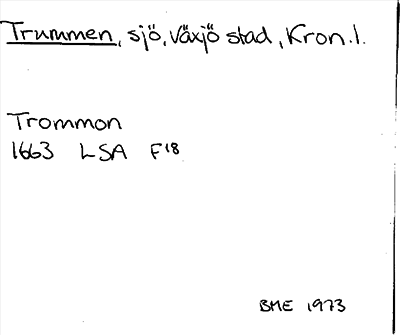 Trummen, sjö, Växjö stad, Kron.l.
Trommon
1663 LSA F18
BME 1973